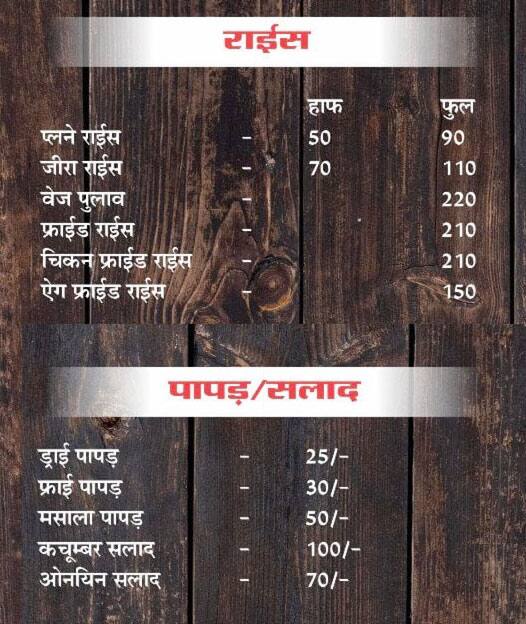 राईस
हाफ फुल
प्लने राईस - 50 90
जीरा राईस - 70 110
वेज पुलाव - 220
फ्राईड राईस - 210
चिकन फ्राईड राईस - 210
ऐग फ्राईड राईस - 150
पापड़/सलाद
ड्राई पापड़ - 25/-
फ्राई पापड़ - 30/-
मसाला पापड़ - 50/-
कचूम्बर सलाद - 100/-
ओनयिन सलाद - 70/-